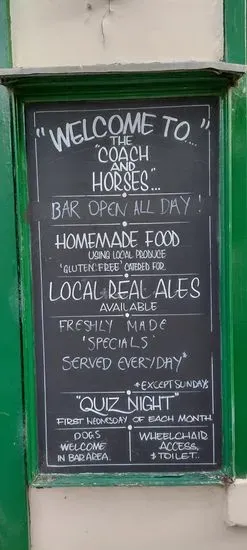 "WELCOME TO...."
THE
"COACH
AND
HORSES"...
BAR OPEN ALL DAY!
HOMEMADE FOOD
USING LOCAL PRODUCE
'GLUTEN FREE' CATERED FOR.
LOCAL REAL ALES
AVAILABLE
FRESHLY MADE
'SPECIALS'
SERVED EVERYDAY*
*EXCEPT SUNDAYS
"QUIZ NIGHT"
FIRST WEDNESDAY OF EACH MONTH.
DOGS
WELCOME
IN BAR AREA.
WHEELCHAIR
ACCESS,
& TOILET..